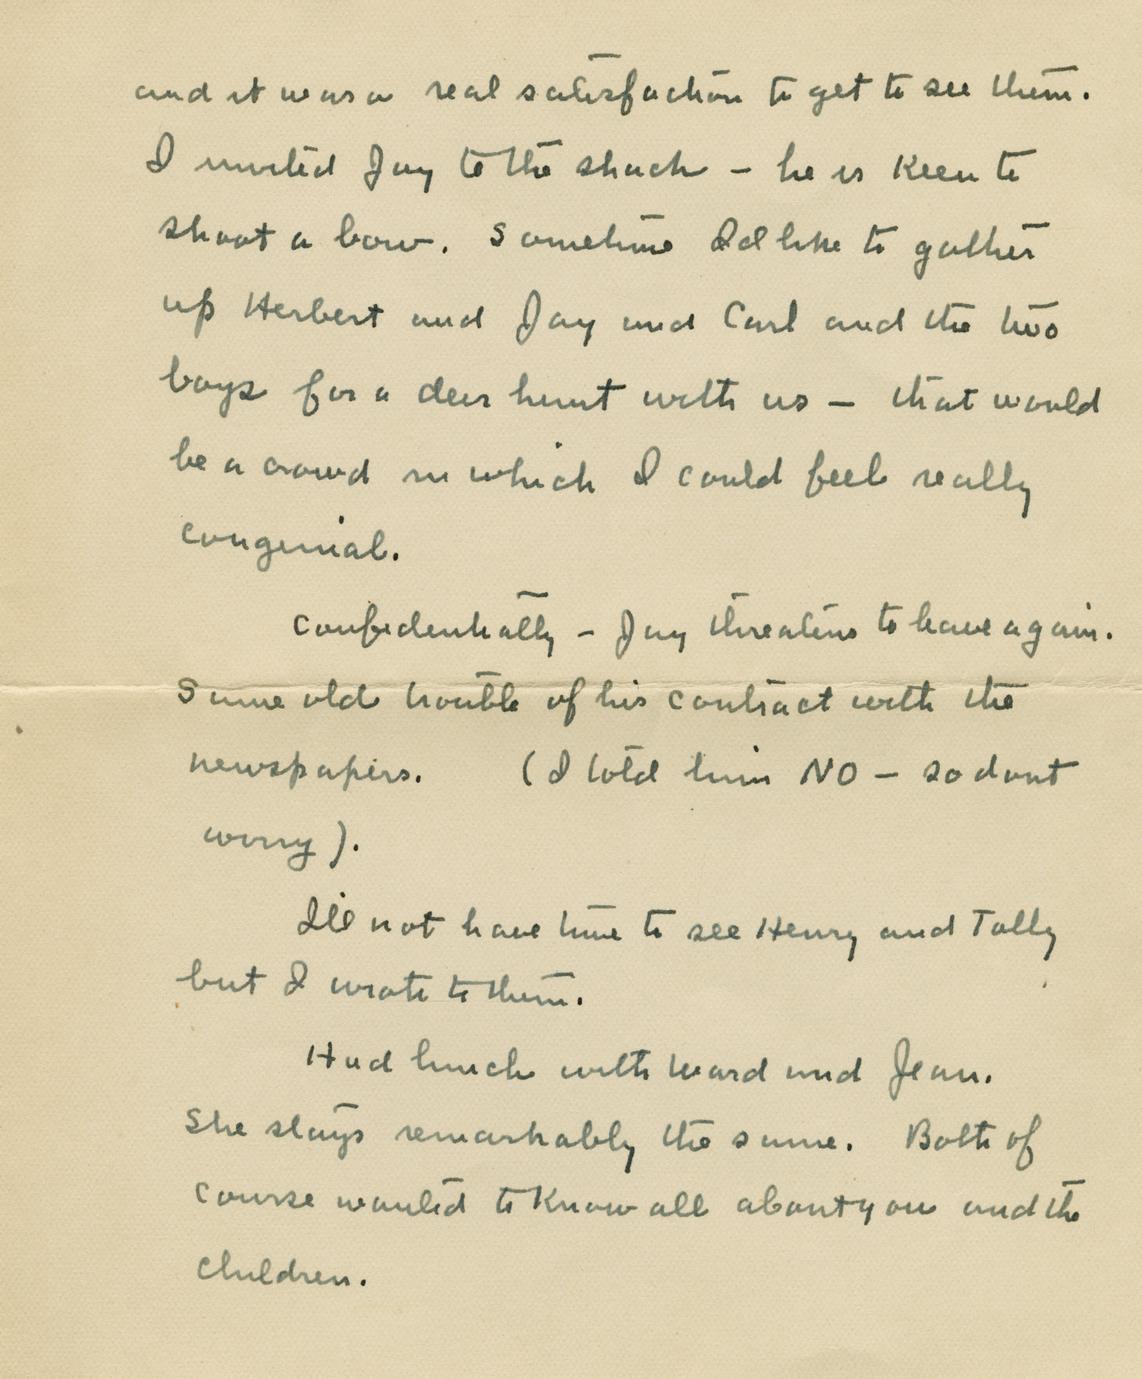 and it was a real satisfaction to get to see them.
I invited Jay to the shack – he is keen to
shoot a bow. Sometime I'd like to gather
up Herbert and Jay and Carl and the two
boys for a deer hunt with us – that would
be a crowd in which I could feel really
congenial.
Confidentially – Jay threatens to leave again.
Same old trouble of his contract with the
newspapers. (I told him NO – so dont
worry).
Did not have time to see Henry and Tally
but I wrote to them.
Had lunch with Ward and Jean.
She stays remarkably the same. Both of
course wanted to know all about you and the
children.